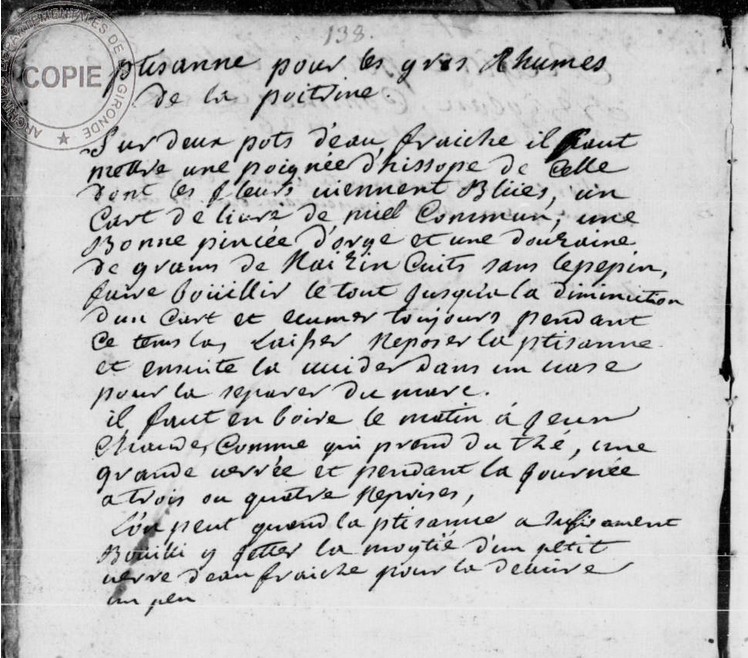 138.
ptisanne pour les gros Rhumes
de la poitrine.
Sur deux pots d'eau fraiche il faut
mettre une poignée d'hissope de Celle
dont les fleurs viennent Blües, un
Cart de livre de miel Commun, une
Bonne pincée d'orge et une douzaine
de grains de Raizin Cuits sans le pepin,
faire boüillir le tout jusqu'a la diminution
d'un Cart et ecumer toujours pendant
Ce tems la, Laisser Reposer la ptisanne
et ensuite la vuider dans un vase
pour la separer du marc.
il faut en boire le matin à jeun
Chaude, Comme qui prend du thé, une
grande verrée et pendant la journée
a trois ou quatre Reprises,
L'on peut quand la ptisanne a sufisament
Bouilli y jetter la moytié d'un petit
verre d'eau fraiche pour la
un peu
COPIE
DE GIRONDE